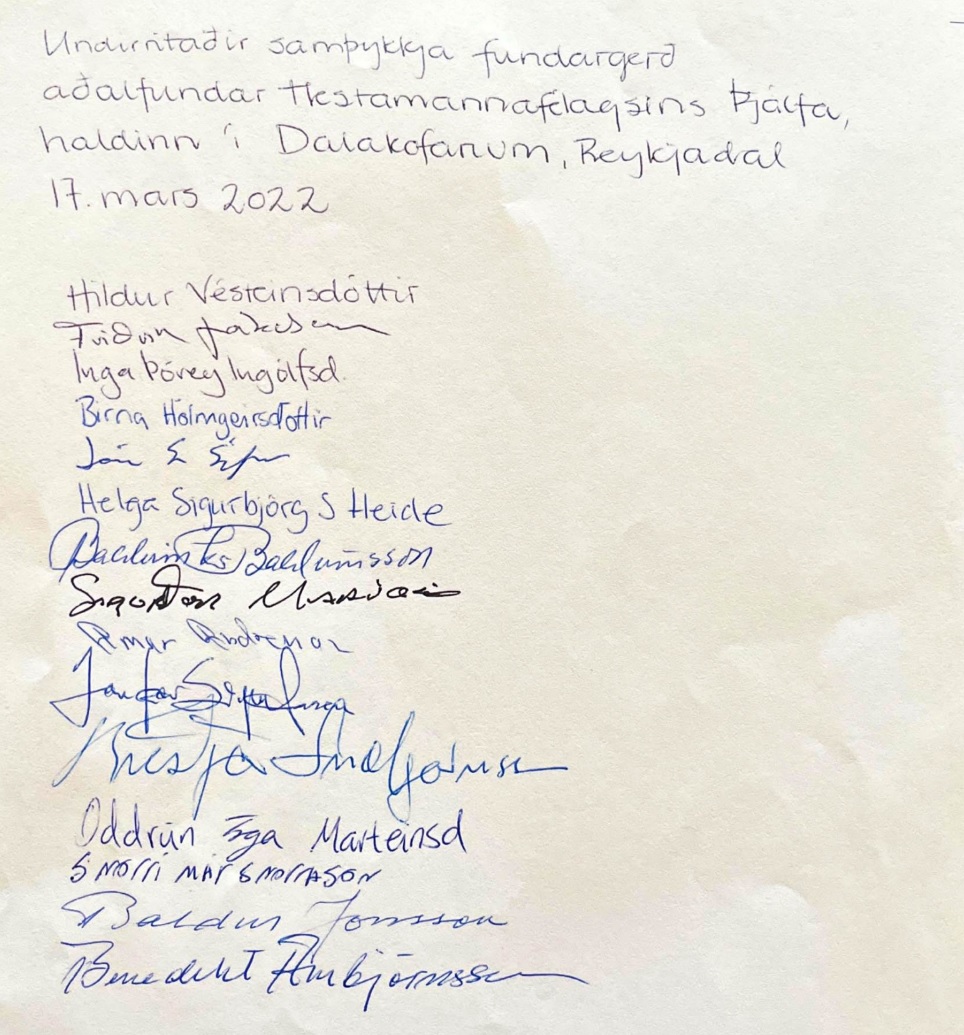 Undirritaðir samþykkja fundargerð
aðalfundar Hestamannafélagsins Þjálfa,
haldinn í Dalakofanum, Reykjadal
17. mars 2022
Hildur Vésteinsdóttir
Inga Þórey Ingólfsd.
Birna Hólmgeirsdóttir
Jón
Helga Sigurbjörg S Heide
Baldvin Kr Baldvinsson
Oddrún Inga Marteinsd
Snorri Már Snorrason
Baldur Jónsson
Benedikt Arnbjörnsson